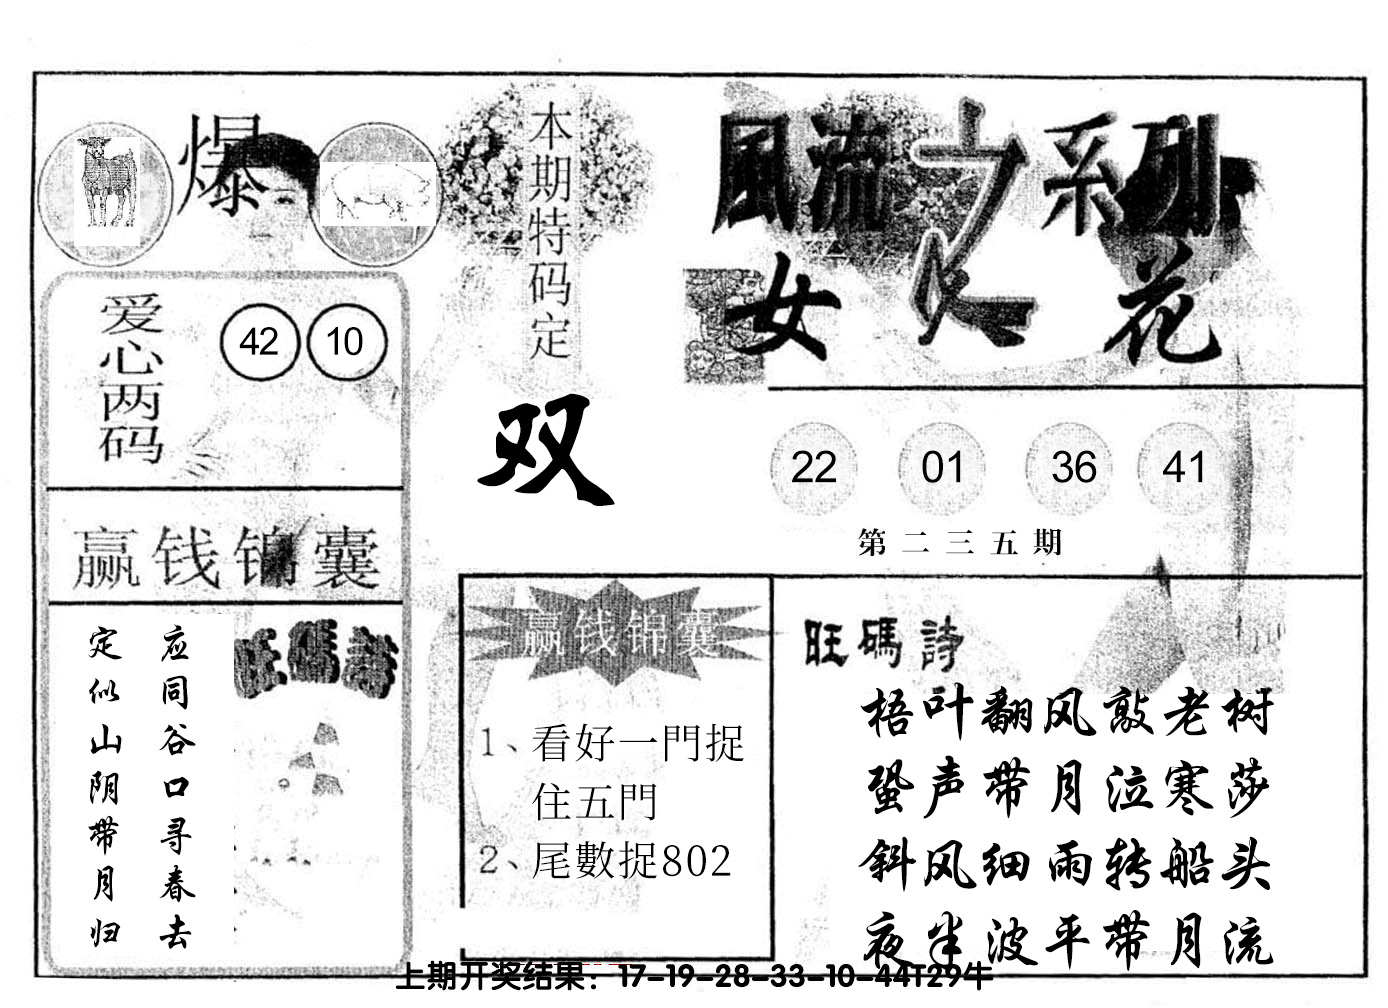 爆
本期特码定
双
風流之系列
女人花
爱心两码
42 10
22 01 36 41
第二三五期
赢钱锦囊
应同谷口寻春去
定似山阴带月归
旺碼詩
赢钱锦囊
1、看好一門捉
住五門
2、尾數捉802
旺碼詩
梧叶翻风敲老树
蛩声带月泣寒莎
斜风细雨转船头
夜半波平带月流
上期开奖结果：17-19-28-33-10-44T29牛